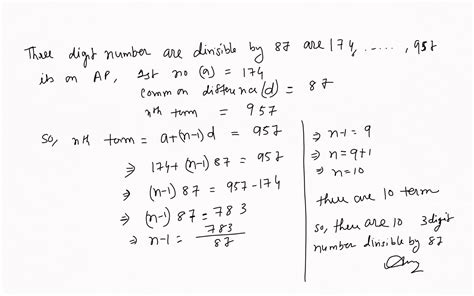 Three digit number are divisible by 87 are 174, ......, 957
its on AP, 1st no (a) = 174
common difference (d) = 87
nth term = 957
So, nth term = a+(n-1)d = 957
⇒ 174+ (n-1) 87 = 957
⇒ (n-1) 87 = 957-174
⇒ (n-1) 87 = 783
⇒ n-1 = 783/87
⇒ n-1 = 9
⇒ n = 9+1
⇒ n = 10
there are 10 term
so, there are 10 3 digit
number divisible by 87